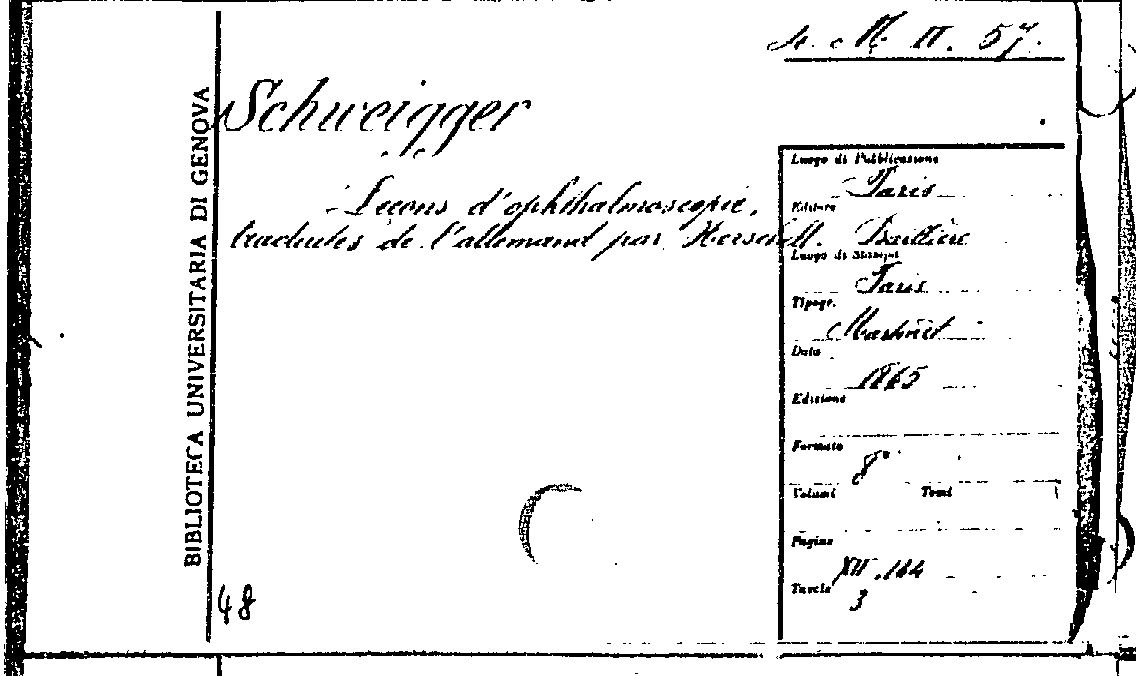 4. M. II. 57.
BIBLIOTECA UNIVERSITARIA DI GENOVA
Schweigger
Leçons d'ophthalmoscopie,
traduites de l'allemand par Herschell.
Luogo di Pubblicazione
Paris
Editore
Baillière
Luogo di Stampa
Paris
Tipogr.
Martinet
Data
1865
Edizione
Formato
8°
Volumi Tomi
Pagine
XII, 144
Tavole
3
48